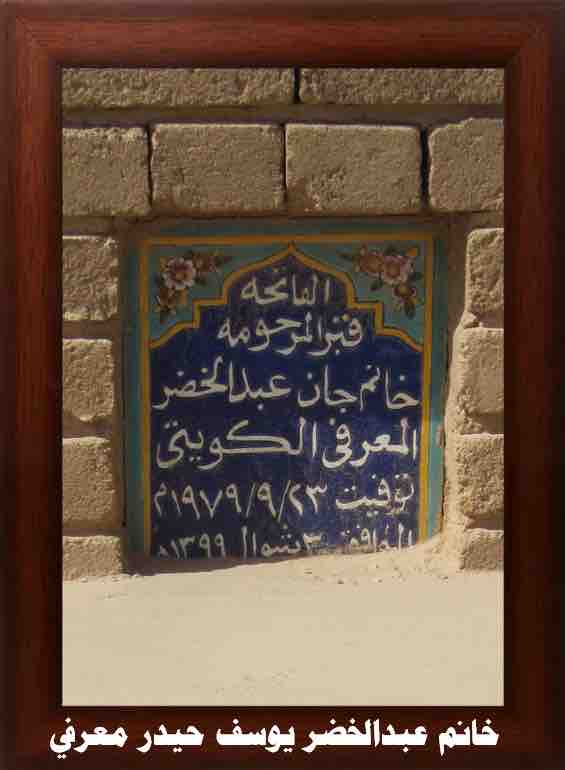 الفاتحه
قبر المرحومه
خانم جان عبدالخضر
المعرفي الكويتي
توفيت ١٩٧٩/٩/٢٣م
الموافق ٣ شوال ١٣٩٩ه
خانم عبدالخضر يوسف حيدر معرفي